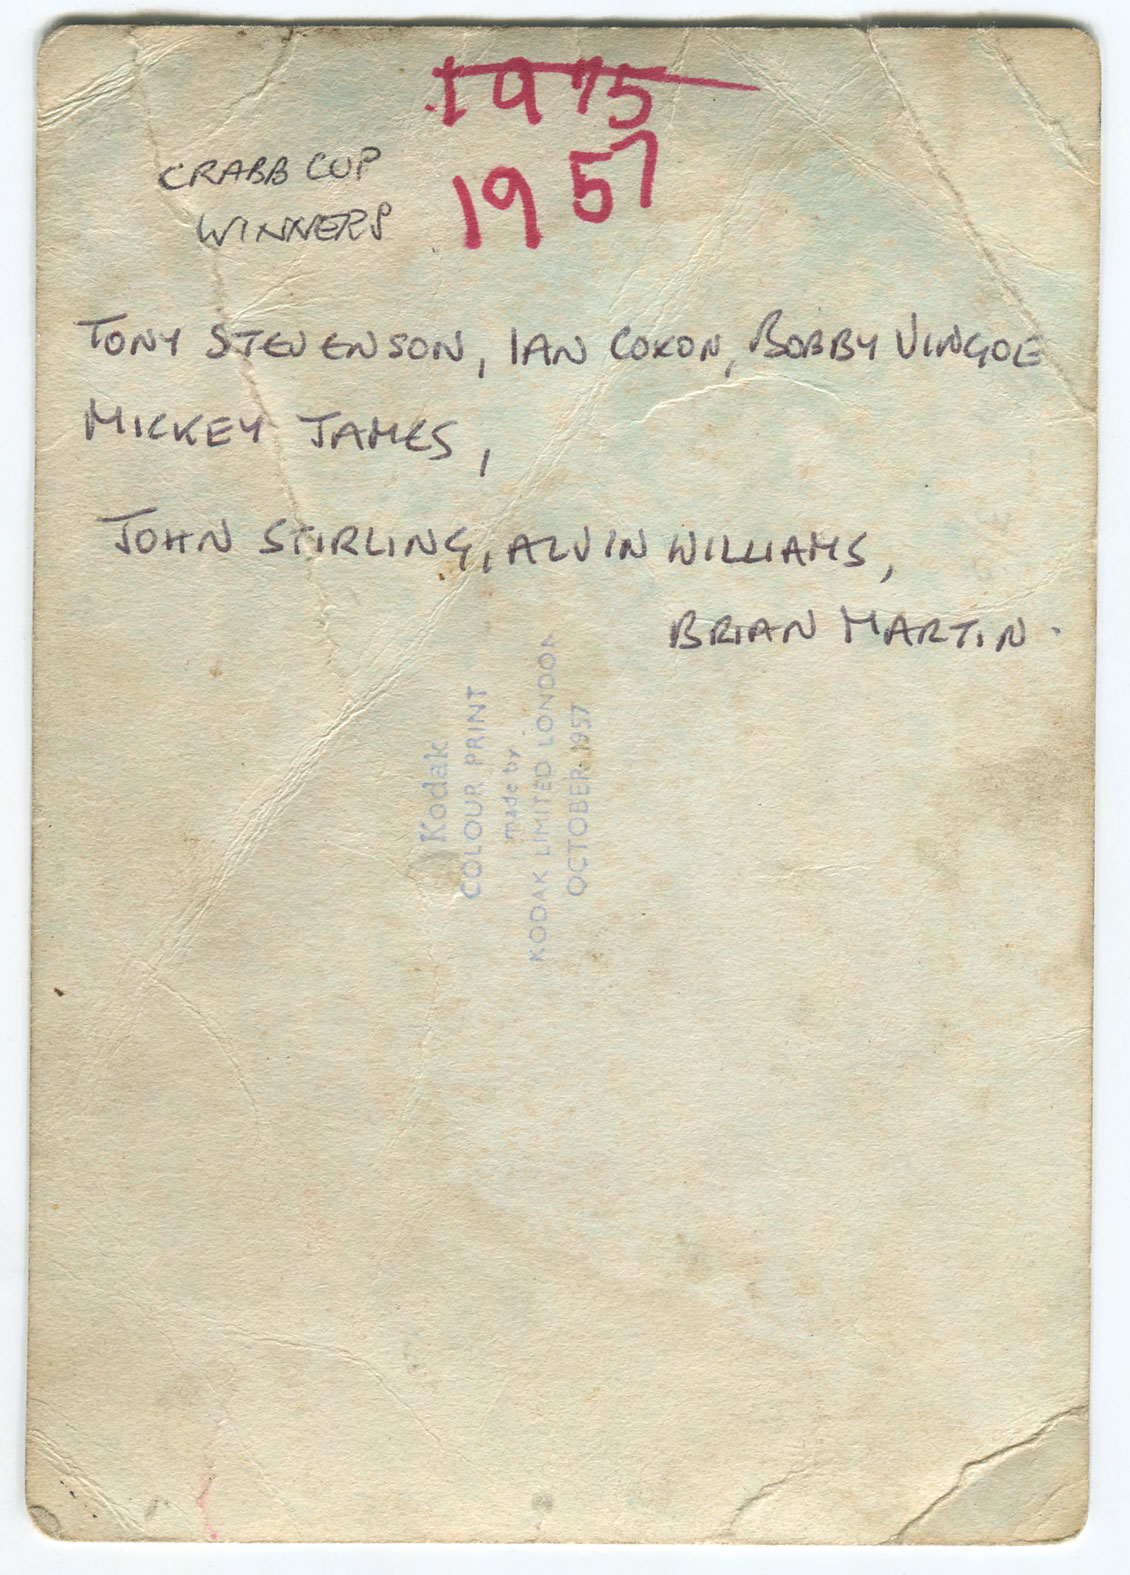 1975
1957
CRABB CUP
WINNERS
TONY STEVENSON, IAN COXON, BOBBY VINGOE
MICKEY JAMES,
JOHN STIRLING, ALVIN WILLIAMS,
BRIAN MARTIN.
Kodak
COLOUR PRINT
made by
KODAK LIMITED LONDON
OCTOBER 1957